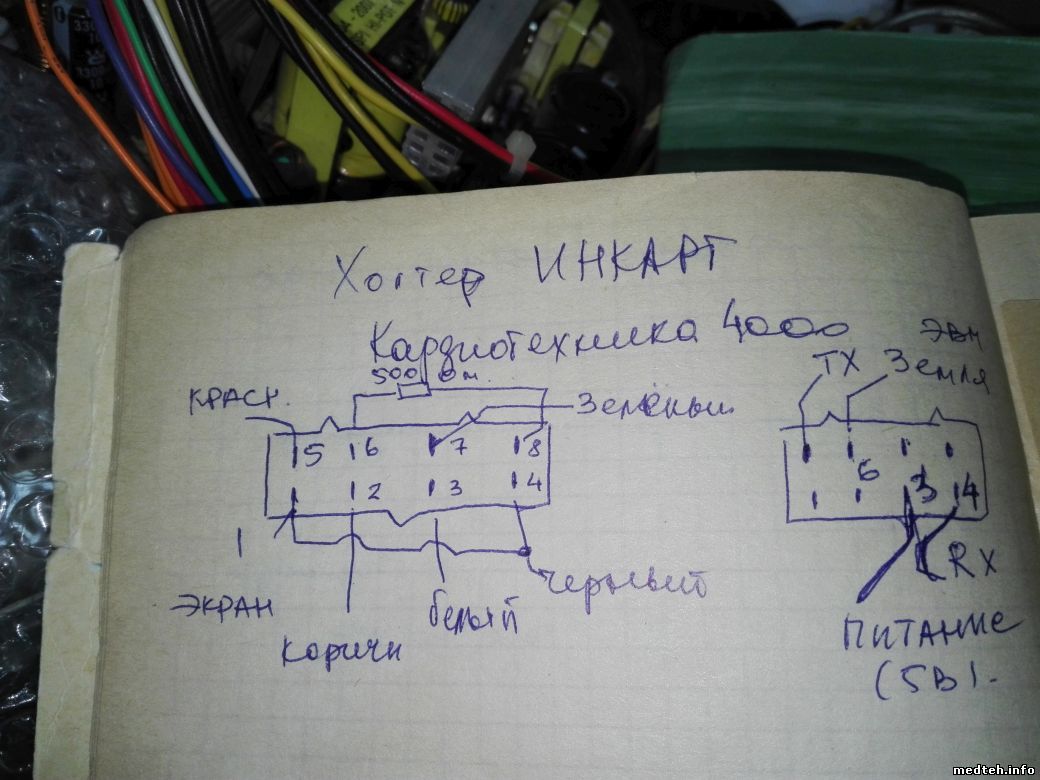 Холтер ИНКАРТ
Кардиотехника 4000
ЭВМ
500 Ом.
TX Земля
КРАСН.
Зелёный
5 6 7 8
1 2 3 4
6 3 4
RX
ЭКРАН
Коричн
белый
черный
ПИТАНИЕ
(5В).
medteh.info